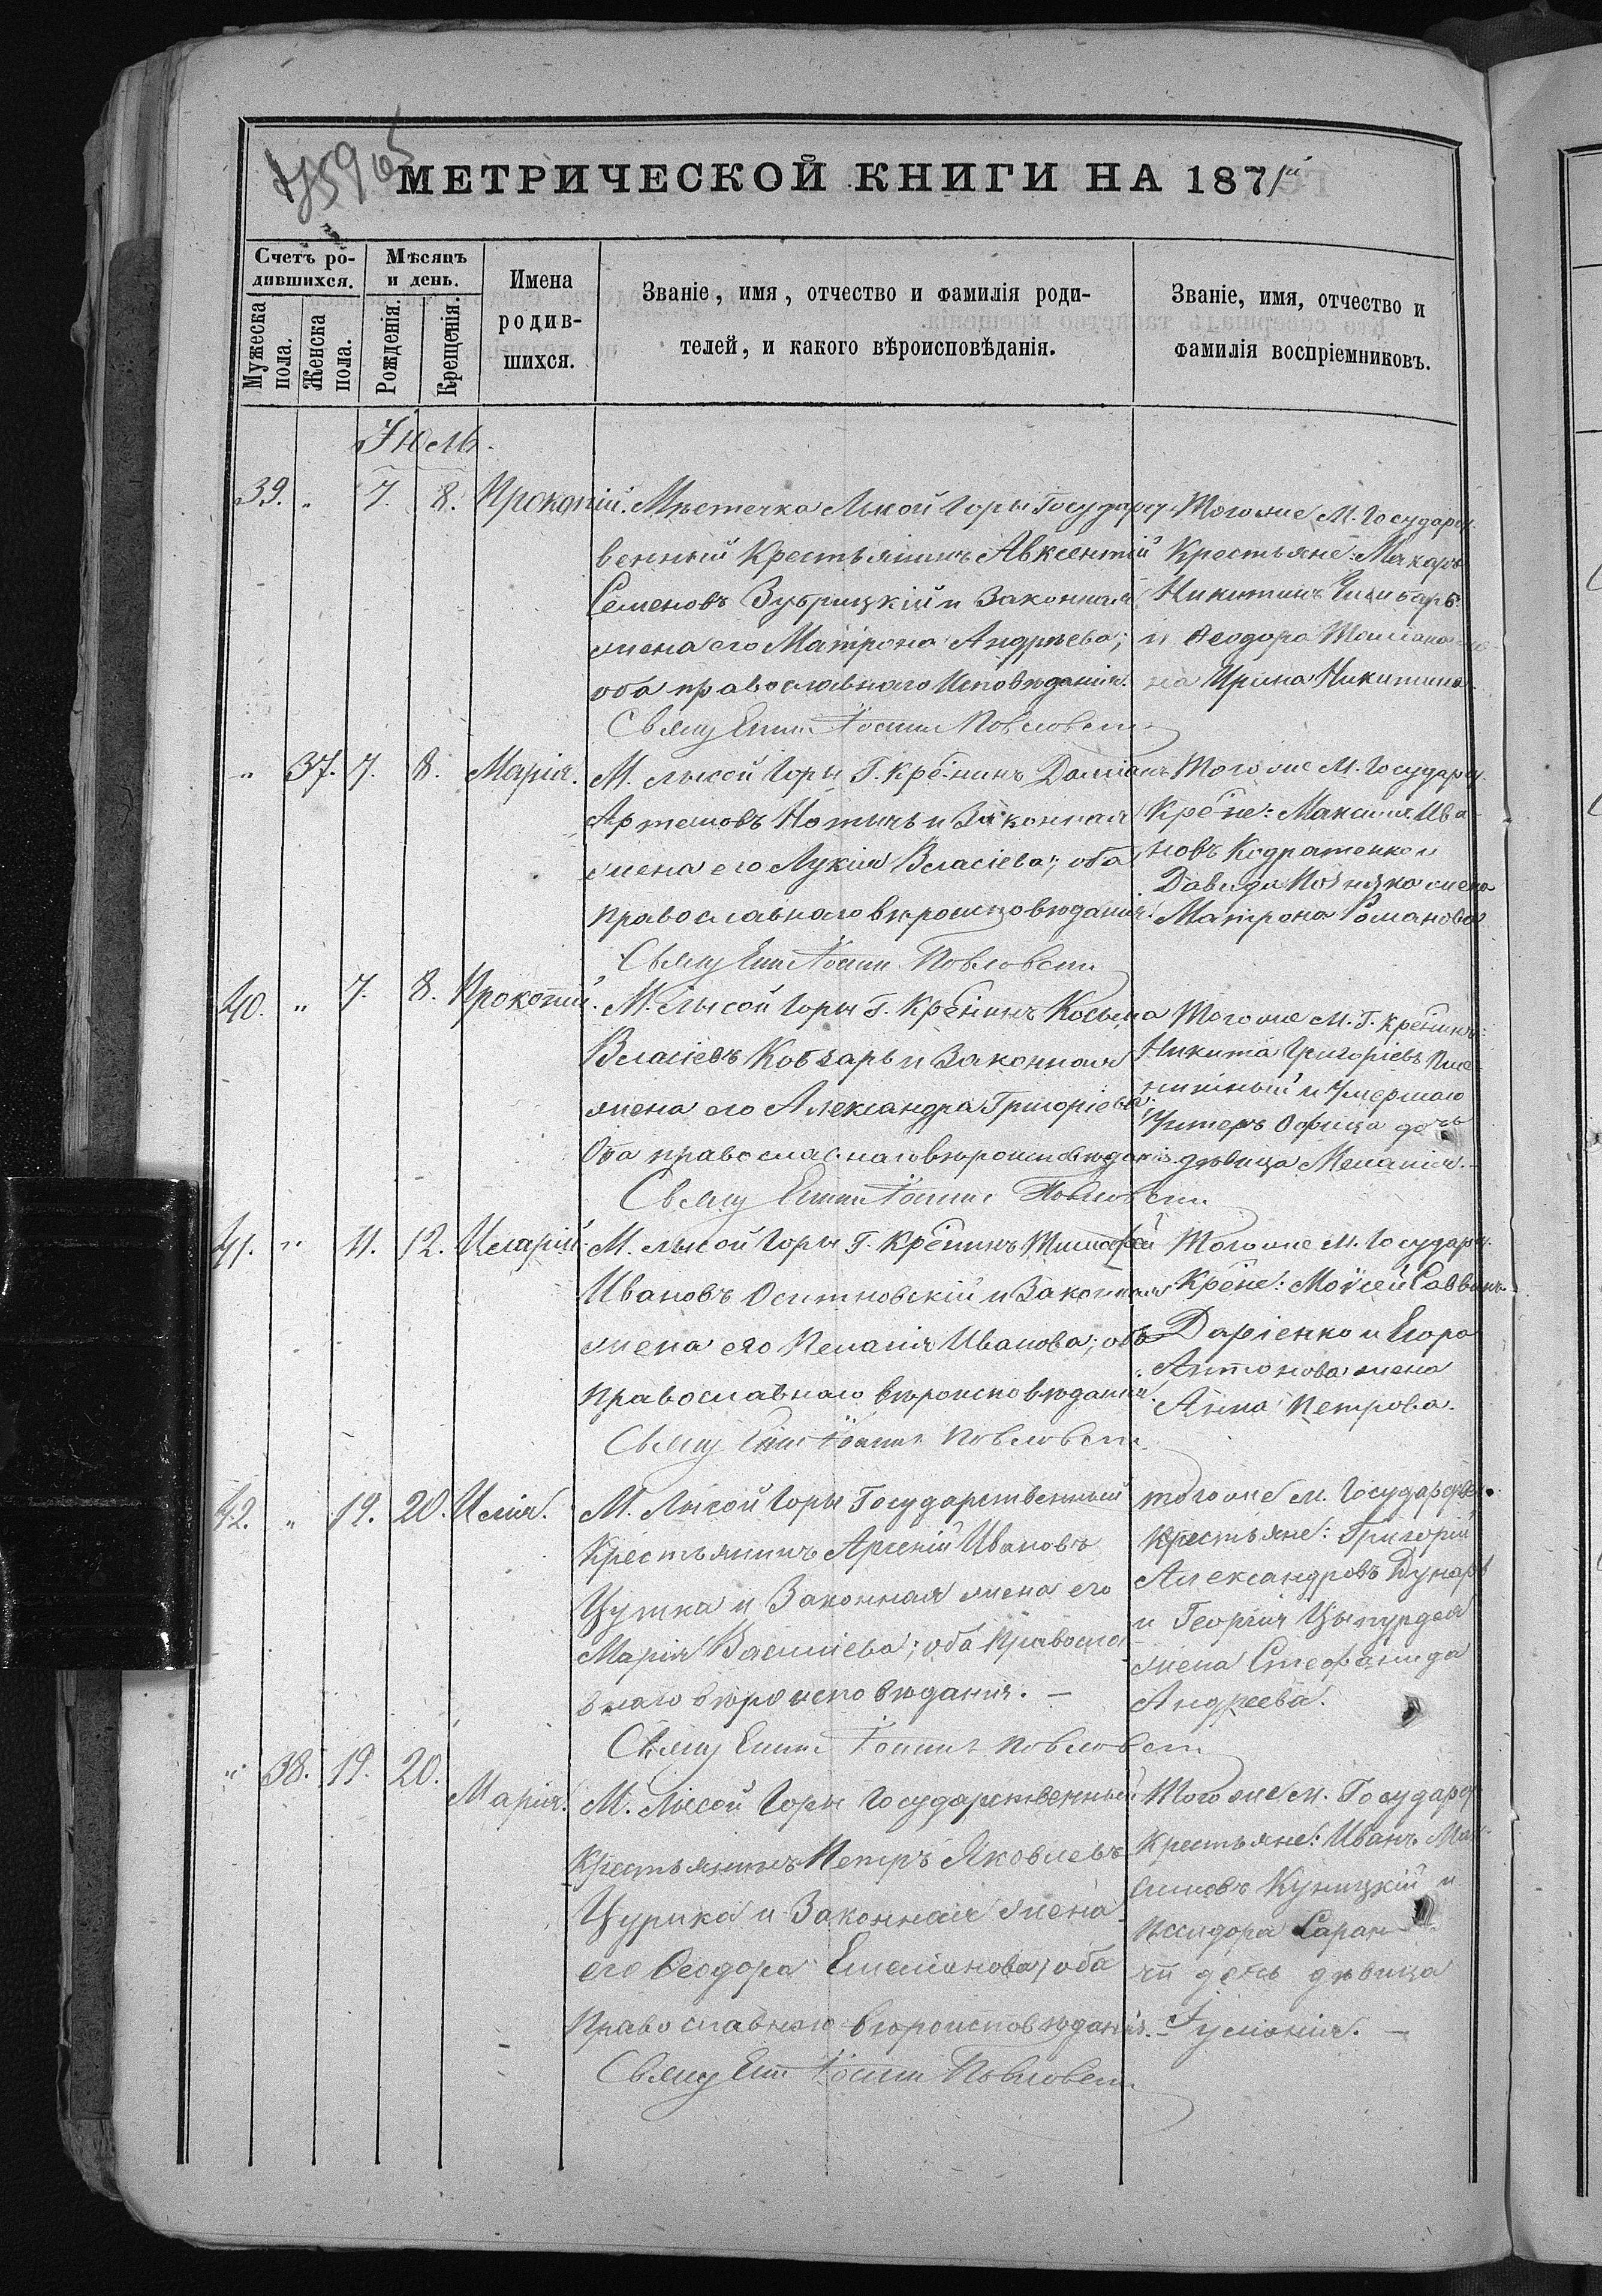 МЕТРИЧЕСКОЙ КНИГИ НА 1871й
Счетъ ро-
дившихся.
Мужеска
пола.
Женска
пола.
Мѣсяцъ
и день.
Рожденія.
Крещенія.
Имена
родив-
шихся.
Званіе, имя, отчество и фамилія роди-
телей, и какого вѣроисповѣданія.
Званіе, имя, отчество и
фамилія воспріемниковъ.
Июль.
39. " 7. 8. Прокопій. Мѣстечка Лысой Горы Государст-
венный Крестьянинъ Авксентій
Семеновъ Зубрицкій и Законная
жена его Матрона Андреева;
оба православнаго Исповѣданія.
Тогоже М. Государст.
Крестьяне: Макаръ
Никитинъ
и Ѳеодора
на Ирина Никитина.
Свящ Іоаннъ
" 37. 7. 8. Марія. М. Лысой Горы Г. Кре-нинъ Даміанъ
Артемовъ и Законная
жена его Лукія Власіева; оба
православнаго вѣроисповѣданія.
Тогоже М. Государст.
Кре-не: Максимъ Ива-
новъ Кодратенко и
Давида жена
Матрона Романова
Свящ Іоаннъ
40. " 7. 8. Прокопій. М. Лысой Горы Г. Кре-нинъ Косьма
Власіевъ Кобзарь и Законная
жена его Александра Григоріева.
Оба православнаго вѣроисповѣданія.
Тогоже М. Г. Кре-нинъ:
Никита Григоріевъ
и Умершаго
Унтеръ Офицера дочь
дѣвица Меланія.
Свящ Іоаннъ
41. " 11. 12. Иларій. М. Лысой Горы Г. Кре-нинъ Тимофей
Ивановъ и Законная
жена его Пелагія Иванова; оба
православнаго вѣроисповѣданія.
Тогоже М. Государст.
Кре-не: Мойсей Саввинъ
Даріенко и Егора
Антонова жена
Анна Петрова.
Свящ Іоаннъ
42. " 19. 20. Илія. М. Лысой Горы Государственный
Крестьянинъ Арсеній Ивановъ
и Законная жена его
Марія Василіева; оба Правосла-
внаго вѣроисповѣданія. —
тогоже м. Государств.
Крестьяне: Григорій
Александровъ
и Георгія
жена Стефанида
Андреева.
Свящ Іоаннъ
" 38. 19. 20. Марія. М. Лысой Горы Государственный
Крестьянинъ Петръ Яковлевъ
Цурика и Законная жена
его Ѳеодора Емеліанова; оба
Православнаго вѣроисповѣданія.
Тогоже м. Государст
Крестьяне: Иванъ Мак-
симовъ Куницкій и
Исидора Саран-
чи дочь дѣвица
Іуліанія. —
Свящ Іоаннъ